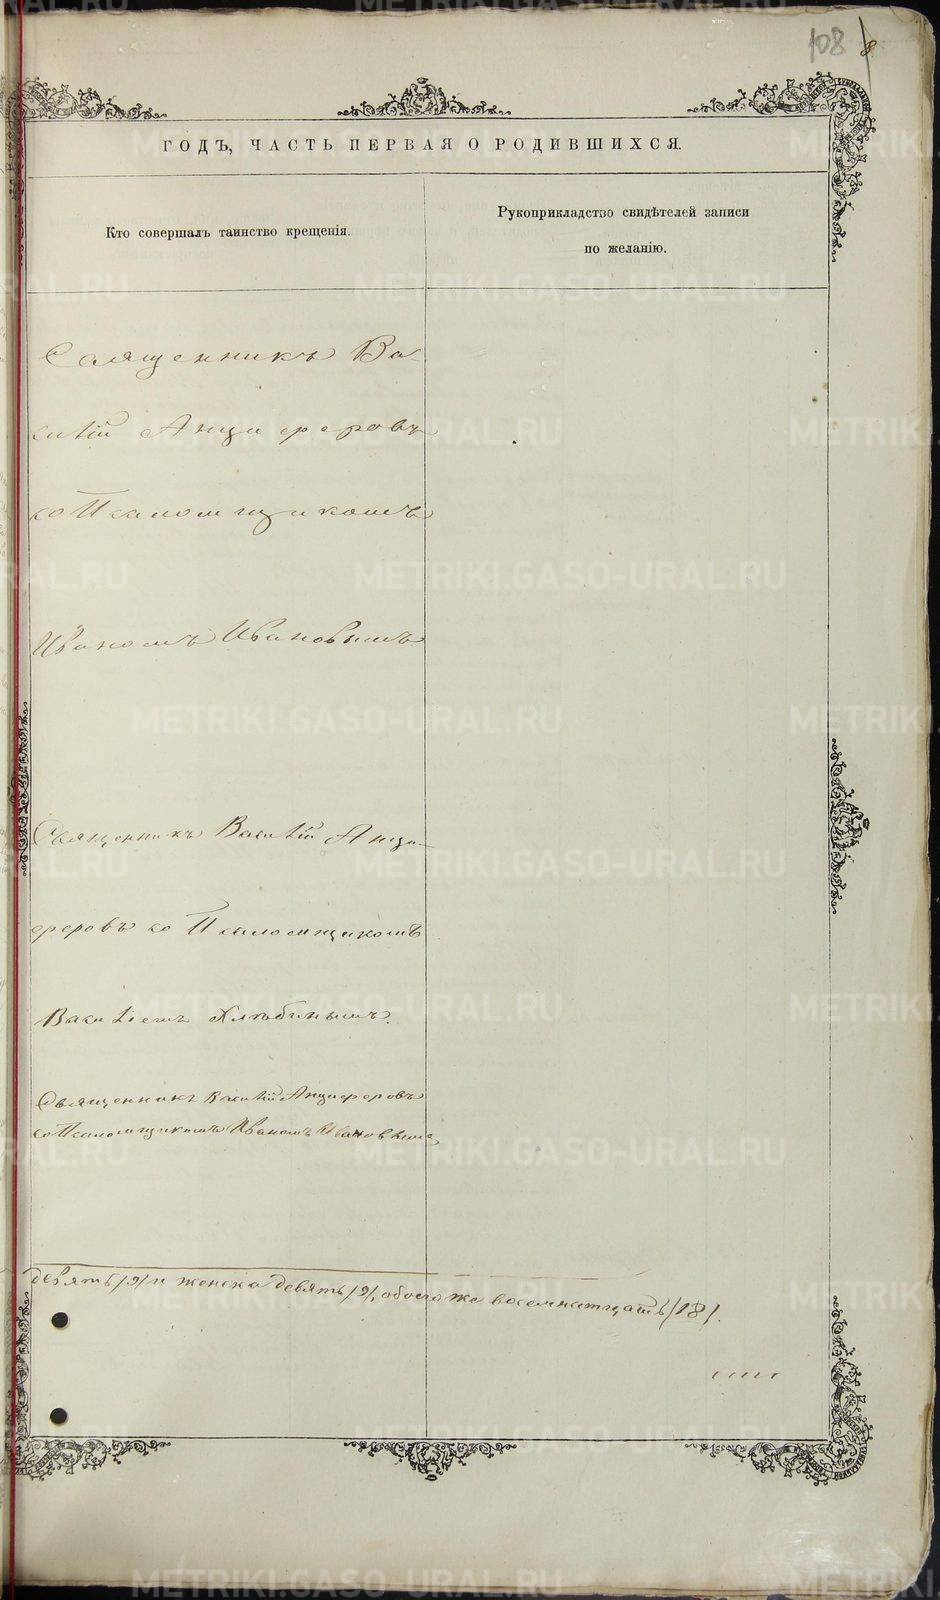 108 8
ГОДЪ, ЧАСТЬ ПЕРВАЯ О РОДИВШИХСЯ.
Кто совершалъ таинство крещенія.
Рукоприкладство свидѣтелей записи
по желанію.
Священникъ Ва-
силій Анциферовъ
со Псаломщикомъ
Иваномъ Ивановымъ
Священникъ Василій Анци-
феровъ со Псаломщикомъ
Василіемъ Хлѣбинымъ.
Священникъ Василій Анциферовъ
со Псаломщикомъ Иваномъ Ивановымъ
девять /9/ и женска девять /9/, обоего же восемнатцать /18/.
METRIKI.GASO-URAL.RU